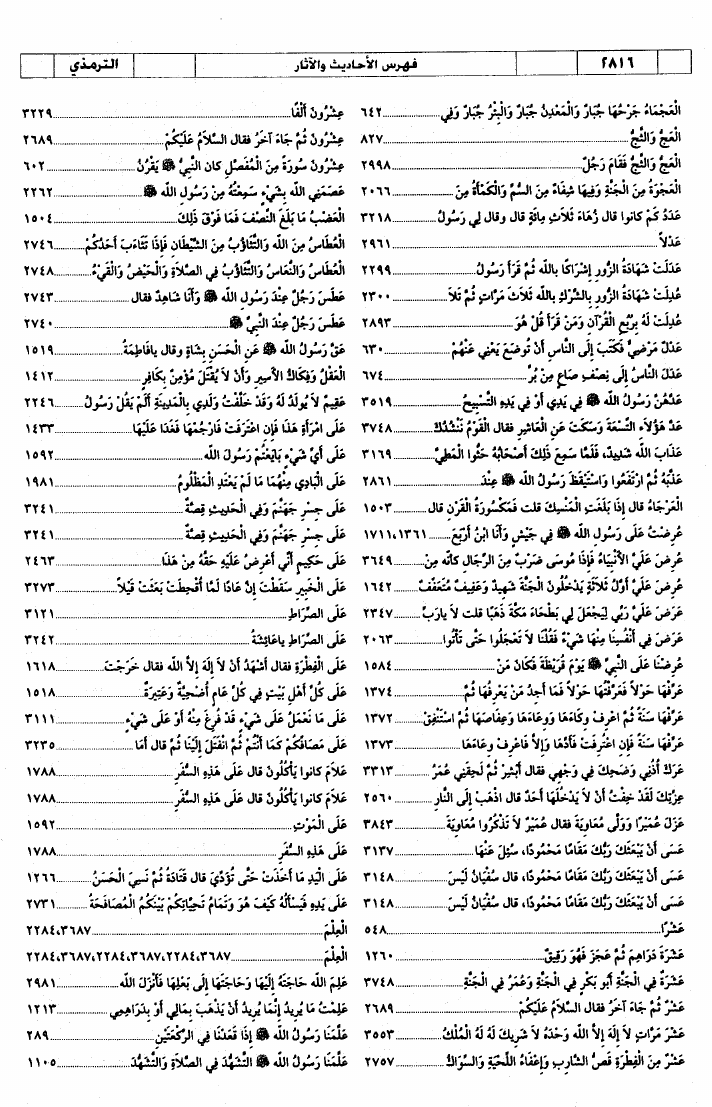 ٢٨١٦
فهرس الأحاديث والآثار
الترمذي
الْعَجْمَاءُ جَرْحُهَا جُبَارٌ وَالْمَعْدِنُ جُبَارٌ وَالْبِئْرُ جُبَارٌ وَفِي ٦٤٢
الْعَجُّ وَالثَّجُّ ٨٢٧
الْعَجُّ وَالثَّجُّ فَقَامَ رَجُلٌ ٢٩٩٨
الْعَجْوَةُ مِنَ الْجَنَّةِ وَفِيهَا شِفَاءٌ مِنَ السُّمِّ وَالْكَمْأَةُ مِنَ ٢٠٦٦
عَدَدُ كَمْ كانوا قال زُهَاءَ ثَلَاثِ مِائَةٍ قال وقال لِي رَسُولُ ٣٢١٨
عَدْلاً ٢٩٦١
عَدَلَتْ شَهَادَةُ الزُّورِ إِشْرَاكًا بالله ثُمَّ قَرَأَ رَسُولُ ٢٢٩٩
عُدِلَتْ شَهَادَةُ الزُّورِ بِالشِّرْكِ بالله ثَلَاثَ مَرَّاتٍ ثُمَّ تَلَا ٢٣٠٠
عُدِلَتْ لَهُ بِرُبْعِ الْقُرْآنِ وَمَنْ قَرَأَ قُلْ هُوَ ٢٨٩٣
عَدْلٌ مَرْضِيٌّ فَكَتَبَ إِلَى النَّاسِ أَنْ تُوضَعَ يَعْنِي عَنْهُمْ ٦٣٠
عَدَلَ النَّاسُ إِلَى نِصْفِ صَاعٍ مِنْ بُرٍّ ٦٧٤
عَدَّهُنَّ رَسُولُ الله ﷺ فِي يَدِي أَوْ فِي يَدِهِ التَّسْبِيحُ ٣٥١٩
عَدَّ هَؤُلَاءِ التِّسْعَةَ وَسَكَتَ عَنِ الْعَاشِرِ فقال الْقَوْمُ نَنْشُدُكَ ٣٧٤٨
عَذَابَ الله شَدِيدٌ، فَلَمَّا سَمِعَ ذَلِكَ أَصْحَابُهُ حَثُّوا الْمَطِيَّ ٣١٦٩
عَذْبُهُ ثُمَّ ارْتَفَعُوا وَاسْتَيْقَظَ رَسُولُ الله ﷺ عِنْدَ ٢٨٦١
الْعَرْجَاءُ قال إِذَا بَلَغَتِ الْمَنْسِكَ قلت فَمَكْسُورَةُ الْقَرْنِ قال ١٥٠٣
عُرِضْتُ عَلَى رَسُولِ الله ﷺ فِي جَيْشٍ وَأَنَا ابْنُ أَرْبَعَ ١٣٦١، ١٧١١
عُرِضَ عَلَيَّ الْأَنْبِيَاءُ فَإِذَا مُوسَى ضَرْبٌ مِنَ الرِّجَالِ كأنه مِنْ ٣٦٤٩
عُرِضَ عَلَيَّ أَوَّلُ ثَلَاثَةٍ يَدْخُلُونَ الْجَنَّةَ شَهِيدٌ وَعَفِيفٌ مُتَعَفِّفٌ ١٦٤٢
عَرَضَ عَلَيَّ رَبِّي لِيَجْعَلَ لِي بَطْحَاءَ مَكَّةَ ذَهَبًا قلت لا يارَبِّ ٢٣٤٧
عَرَضَ فِي أَنْفُسِنَا مِنْهَا شَيْءٌ فَقُلْنَا لَا تَعْجَلُوا حَتَّى تَأْتُوا ٢٠٦٣
عُرِضْنَا عَلَى النَّبِيِّ ﷺ يَوْمَ قُرَيْظَةَ فَكَانَ مَنْ ١٥٨٤
عَرِّفْهَا حَوْلاً فَعَرَّفْتُهَا حَوْلاً فَمَا أَجِدُ مَنْ يَعْرِفُهَا ثُمَّ ١٣٧٤
عَرِّفْهَا سَنَةً ثُمَّ اعْرِفْ وِكَاءَهَا وَوِعَاءَهَا وَعِفَاصَهَا ثُمَّ اسْتَنْفِقْ ١٣٧٢
عَرِّفْهَا سَنَةً فَإِنِ اعْتُرِفَتْ فَأَدِّهَا وَإِلاَّ فَاعْرِفْ وِعَاءَهَا ١٣٧٣
عَرَكَ أُذُنِي وَضَحِكَ فِي وَجْهِي فقال أَبْشِرْ ثُمَّ لَحِقَنِي عُمَرُ ٣٣١٣
عِزَّتِكَ لَقَدْ خِفْتُ أَنْ لَا يَدْخُلَهَا أَحَدٌ قال اذْهَبْ إِلَى النَّارِ ٢٥٦٠
عَزَلَ عُمَيْرًا وَوَلَّى مُعَاوِيَةَ فقال عُمَيْرٌ لَا تَذْكُرُوا مُعَاوِيَةَ ٣٨٤٣
عَسَى أَنْ يَبْعَثَكَ رَبُّكَ مَقَامًا مَحْمُودًا، سُئِلَ عَنْهَا ٣١٣٧
عَسَى أَنْ يَبْعَثَكَ رَبُّكَ مَقَامًا مَحْمُودًا، قال سُفْيَانُ لَيْسَ ٣١٤٨
عَسَى أَنْ يَبْعَثَكَ رَبُّكَ مَقَامًا مَحْمُودًا، قال سُفْيَانُ لَيْسَ ٣١٤٨
عَشْرًا ٥٤٨
عَشَرَةَ دَرَاهِمَ ثُمَّ عَجَزَ فَهُوَ رَقِيقٌ ١٢٦٠
عَشَرَةٌ فِي الْجَنَّةِ أَبُو بَكْرٍ فِي الْجَنَّةِ وَعُمَرُ فِي الْجَنَّةِ ٣٧٤٨
عَشْرٌ ثُمَّ جَاءَ آخَرُ فقال السَّلَامُ عَلَيْكُمْ ٢٦٨٩
عَشْرَ مَرَّاتٍ لَا إِلَهَ إِلاَّ الله وَحْدَهُ لَا شَرِيكَ لَهُ لَهُ الْمُلْكُ ٣٥٥٣
عَشْرٌ مِنَ الْفِطْرَةِ قَصُّ الشَّارِبِ وَإِعْفَاءُ اللِّحْيَةِ وَالسِّوَاكُ ٢٧٥٧
عِشْرُونَ أَلْفًا ٣٢٢٩
عِشْرُونَ ثُمَّ جَاءَ آخَرُ فقال السَّلَامُ عَلَيْكُمْ ٢٦٨٩
عِشْرُونَ سُورَةً مِنَ الْمُفَصَّلِ كان النَّبِيُّ ﷺ يَقْرُنُ ٦٠٢
عَصَمَنِي الله بِشَيْءٍ سَمِعْتُهُ مِنْ رَسُولِ الله ﷺ ٢٢٦٢
الْعَضْبُ مَا بَلَغَ النِّصْفَ فَمَا فَوْقَ ذَلِكَ ١٥٠٤
الْعُطَاسُ مِنَ الله وَالتَّثَاؤُبُ مِنَ الشَّيْطَانِ فَإِذَا تَثَاءَبَ أَحَدُكُمْ ٢٧٤٦
الْعُطَاسُ وَالنُّعَاسُ وَالتَّثَاؤُبُ فِي الصَّلَاةِ وَالْحَيْضُ وَالْقَيْءُ ٢٧٤٨
عَطَسَ رَجُلٌ عِنْدَ رَسُولِ الله ﷺ وَأَنَا شَاهِدٌ فقال ٢٧٤٣
عَطَسَ رَجُلٌ عِنْدَ النَّبِيِّ ﷺ ٢٧٤٠
عَقَّ رَسُولُ الله ﷺ عَنِ الْحَسَنِ بِشَاةٍ وقال يافَاطِمَةُ ١٥١٩
الْعَقْلُ وَفِكَاكُ الْأَسِيرِ وَأَنْ لَا يُقْتَلَ مُؤْمِنٌ بِكَافِرٍ ١٤١٢
عَقِيمٌ لَا يُولَدُ لَهُ وَقَدْ خَلَّفْتُ وَلَدِي بِالْمَدِينَةِ أَلَمْ يَقُلْ رَسُولُ ٢٢٤٦
عَلَى امْرَأَةِ هَذَا فَإِنِ اعْتَرَفَتْ فَارْجُمْهَا فَغَدَا عَلَيْهَا ١٤٣٣
عَلَى أَيِّ شَيْءٍ بَايَعْتُمْ رَسُولَ الله ١٥٩٢
عَلَى الْبَادِي مِنْهُمَا مَا لَمْ يَعْتَدِ الْمَظْلُومُ ١٩٨١
عَلَى جِسْرِ جَهَنَّمَ وَفِي الْحَدِيثِ قِصَّةٌ ٣٢٤١
عَلَى جِسْرِ جَهَنَّمَ وَفِي الْحَدِيثِ قِصَّةٌ ٣٢٤١
عَلَى حَكِيمٍ أَنِّي أَعْرِضُ عَلَيْهِ حَقَّهُ مِنْ هَذَا ٢٤٦٣
عَلَى الْخَبِيرِ سَقَطْتَ إِنَّ عَادًا لَمَّا أُقْحِطَتْ بَعَثَتْ قَيْلاً ٣٢٧٣
عَلَى الصِّرَاطِ ٣١٢١
عَلَى الصِّرَاطِ ياعَائِشَةُ ٣٢٤٢
عَلَى الْفِطْرَةِ فقال أَشْهَدُ أَنْ لَا إِلَهَ إِلاَّ الله فقال خَرَجْتَ ١٦١٨
عَلَى كُلِّ أَهْلِ بَيْتٍ فِي كُلِّ عَامٍ أُضْحِيَّةٌ وَعَتِيرَةٌ ١٥١٨
عَلَى مَا نَعْمَلُ عَلَى شَيْءٍ قَدْ فُرِغَ مِنْهُ أَوْ عَلَى شَيْءٍ ٣١١١
عَلَى مَصَافِّكُمْ كَمَا أَنْتُمْ ثُمَّ انْفَتَلَ إِلَيْنَا ثُمَّ قال أَمَا ٣٢٣٥
عَلَامَ كانوا يَأْكُلُونَ قال عَلَى هَذِهِ السُّفَرِ ١٧٨٨
عَلَامَ كانوا يَأْكُلُونَ قال عَلَى هَذِهِ السُّفَرِ ١٧٨٨
عَلَى الْمَوْتِ ١٥٩٢
عَلَى هَذِهِ السُّفَرِ ١٧٨٨
عَلَى الْيَدِ مَا أَخَذَتْ حَتَّى تُؤَدِّيَ قال قَتَادَةُ ثُمَّ نَسِيَ الْحَسَنُ ١٢٦٦
عَلَى يَدِهِ فَيَسْأَلُهُ كَيْفَ هُوَ وَتَمَامُ تَحِيَّاتِكُمْ بَيْنَكُمُ الْمُصَافَحَةُ ٢٧٣١
الْعِلْمَ ٢٢٨٤، ٣٦٨٧
الْعِلْمَ ٢٢٨٤، ٣٦٨٧، ٢٢٨٤، ٣٦٨٧، ٢٢٨٤، ٣٦٨٧
عَلِمَ الله حَاجَتَهُ إِلَيْهَا وَحَاجَتَهَا إِلَى بَعْلِهَا فَأَنْزَلَ الله ٢٩٨١
عَلِمْتُ مَا يُرِيدُ إِنَّمَا يُرِيدُ أَنْ يَذْهَبَ بِمَالِي أَوْ بِدَرَاهِمِي ١٢١٣
عَلَّمَنَا رَسُولُ الله ﷺ إِذَا قَعَدْنَا فِي الرَّكْعَتَيْنِ ٢٨٩
عَلَّمَنَا رَسُولُ الله ﷺ التَّشَهُّدَ فِي الصَّلَاةِ وَالتَّشَهُّدَ ١١٠٥